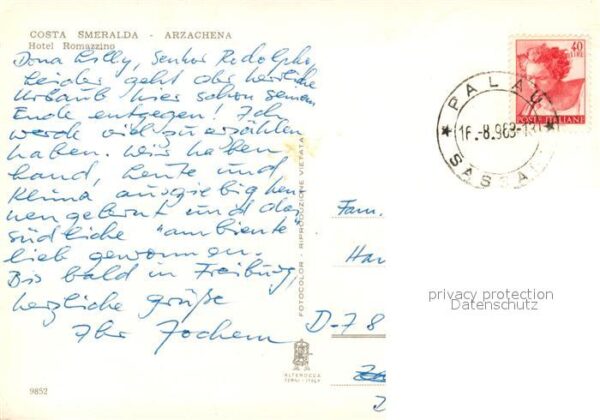 COSTA SMERALDA - ARZACHENA
Hotel Romazzino
Dona Lilly, Senhor Rodolpho,
Leider geht der herrliche
Urlaub hier schon seinem
Ende entgegen! Ich
werde viel zu erzählen
haben. Wir haben
Land, Leute und
Klima ausgiebig ken-
nengelernt und das
südliche "ambiente"
lieb gewonnen.
Bis bald in Freiburg,
herzliche Grüße
Ihr Jochem
9852
FOTOCOLOR - RIPRODUZIONE VIETATA
ALTEROCCA
TERNI - ITALY
40
LIRE
POSTE ITALIANE
PALAU
16.-8.969-13
SASSA
Fam.
Han
D-78
privacy protection
Datenschutz